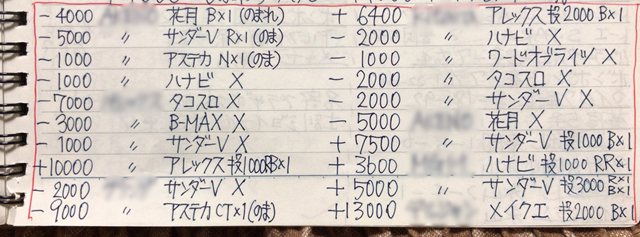 -4000 花月 B×1(のまれ)
-5000 〃 サンダーV R×1(のま)
-1000 〃 アステカ N×1(のま)
-1000 〃 ハナビ X
-7000 タコスロ X
-3000 〃 B-MAX X
-1000 〃 サンダーV X
+10000 〃 アレックス 投1000RB×1
-2000 サンダーV X
-9000 〃 アステカCT×1(のま)
+6400 アレックス 投2000 B×1
-2000 〃 ハナビ X
-1000 〃 ワードオブライツ X
-2000 〃 タコスロ X
-2000 〃 サンダーV X
-5000 花月 X
+7500 〃 サンダーV 投1000 B×1
+3600 ハナビ 投1000 RR×1
+5000 〃 サンダーV 投3000 R×1 B×1
+13000 メイクエ 投2000 B×1